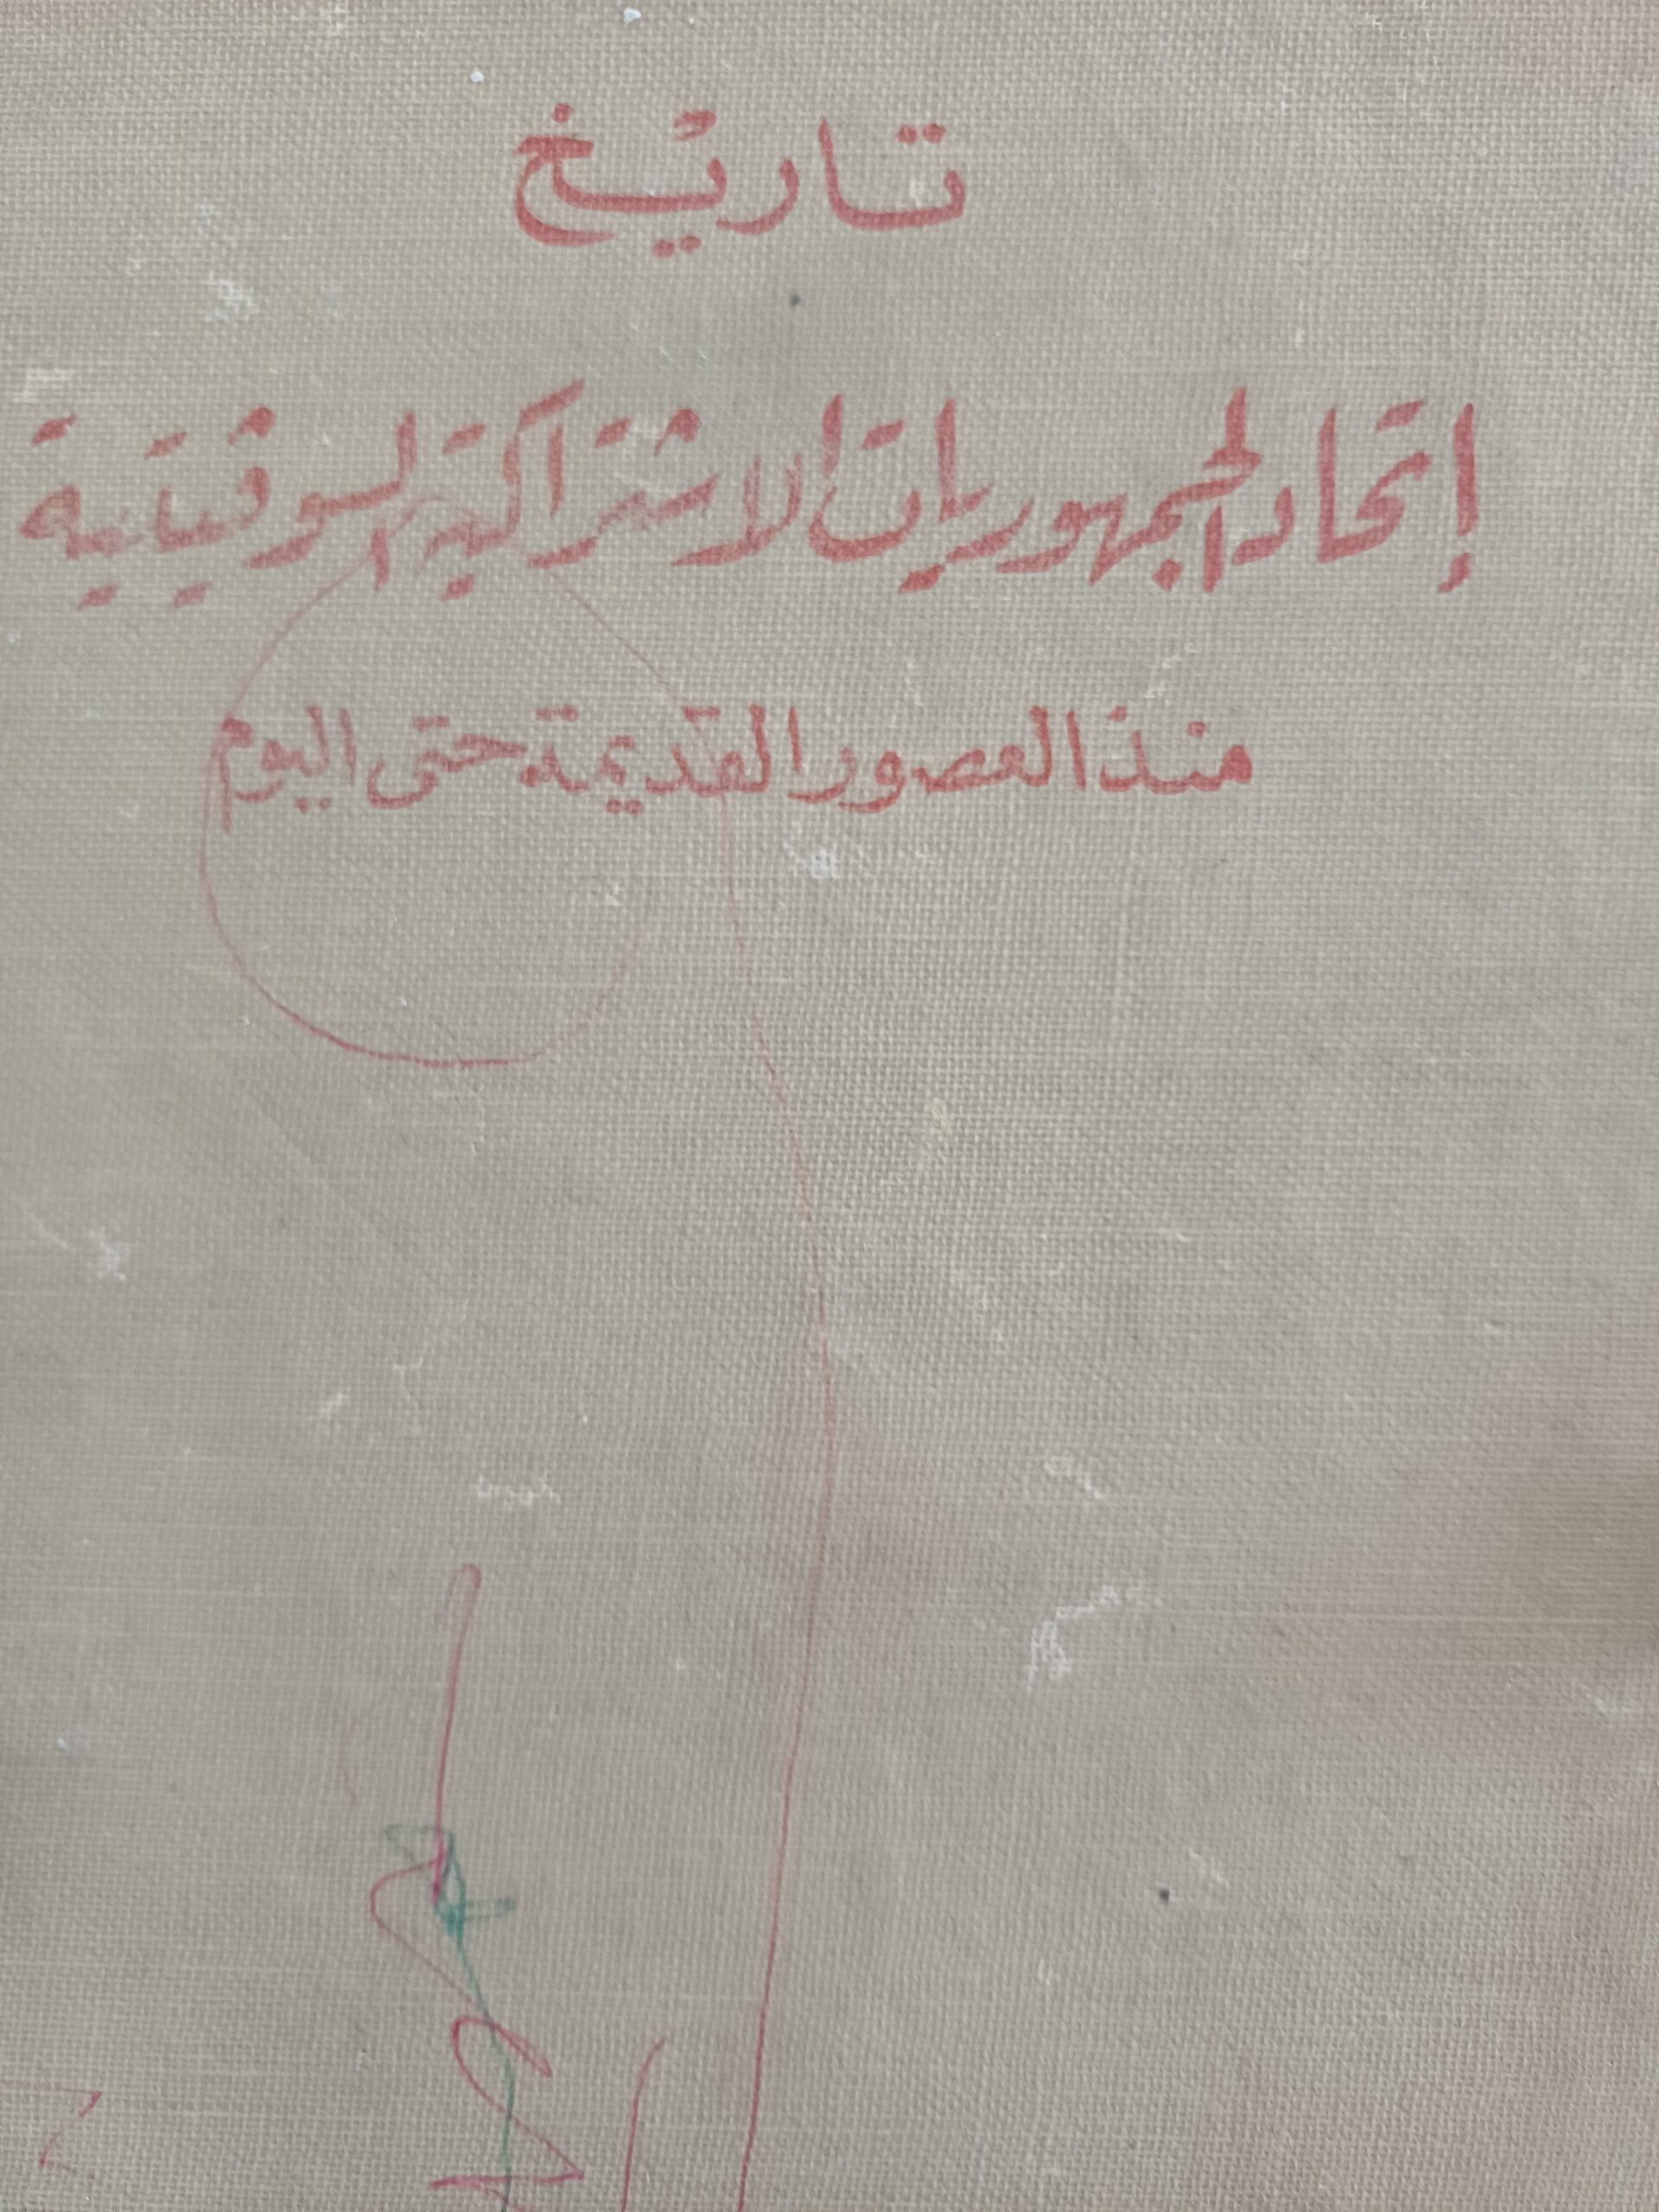 تاريخ
إتحاد الجمهوريات الاشتراكية السوڤيتية
منذ العصور القديمة حتى اليوم